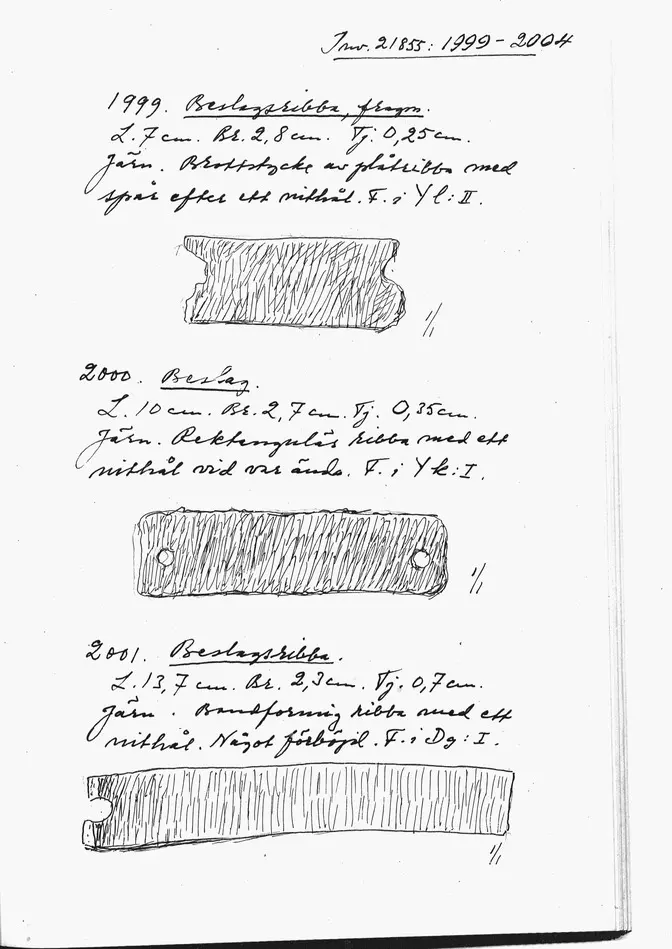 Inv. 21855: 1999 - 2004
1999. Beslagsribba, fragm.
L. 7 cm. Br. 2,8 cm. Tj. 0,25 cm.
Järn. Brottstycke av plåtribba med
spår efter ett nithål. F. i Yl: II.
1/1
2000. Beslag.
L. 10 cm. Br. 2,7 cm. Tj. 0,35 cm.
Järn. Rektangulär ribba med ett
nithål vid var ände. F. i Yk: I.
1/1
2001. Beslagsribba.
L. 13,7 cm. Br. 2,3 cm. Tj. 0,7 cm.
Järn. Bandformig ribba med ett
nithål. Något förböjd. F. i Dg: I.
1/1